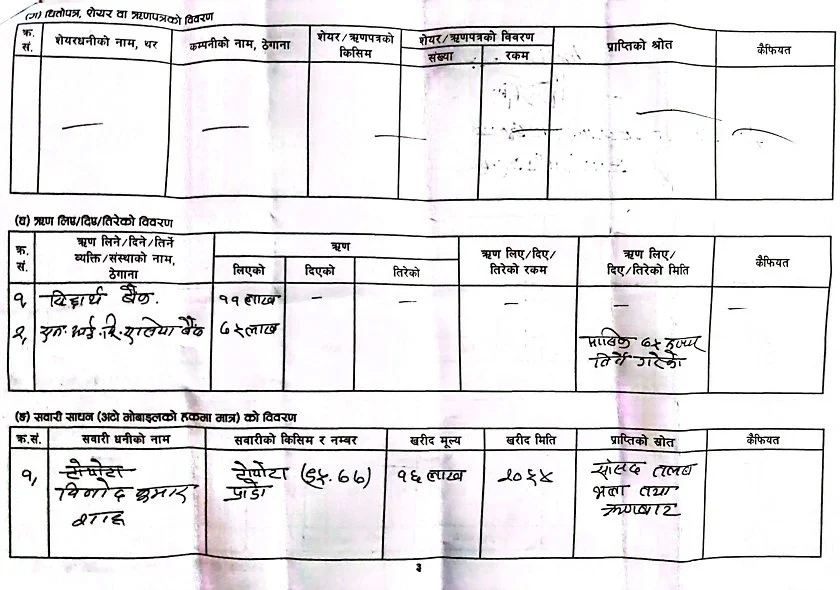 (ग) धितोपत्र, शेयर वा ऋणपत्रको विवरण
क्र.सं. शेयरधनीको नाम, थर कम्पनीको नाम, ठेगाना शेयर/ऋणपत्रको किसिम शेयर/ऋणपत्रको विवरण प्राप्तिको श्रोत कैफियत
संख्या रकम
(घ) ऋण लिए/दिए/तिरेको विवरण
क्र.सं. ऋण लिने/दिने/तिर्ने व्यक्ति/संस्थाको नाम, ठेगाना ऋण ऋण लिए/दिए/तिरेको रकम ऋण लिए/दिए/तिरेको मिति कैफियत
लिएको दिएको तिरेको
१, सिद्धार्थ बैंक. ११ लाख
२, बैंक ७५ लाख मासिक ७५ हजार
तिर्ने गरेको
(ङ) सवारी साधन (अटो मोबाइलको हकमा मात्र) को विवरण
क्र.सं. सवारी धनीको नाम सवारीको किसिम र नम्बर खरीद मूल्य खरीद मिति प्राप्तिको स्रोत कैफियत
१, टोयोटा टोयोटा १६ लाख २०६४ सांसद तलब
विनोद कुमार प्राडो भत्ता तथा
शाह ऋणबाट
३